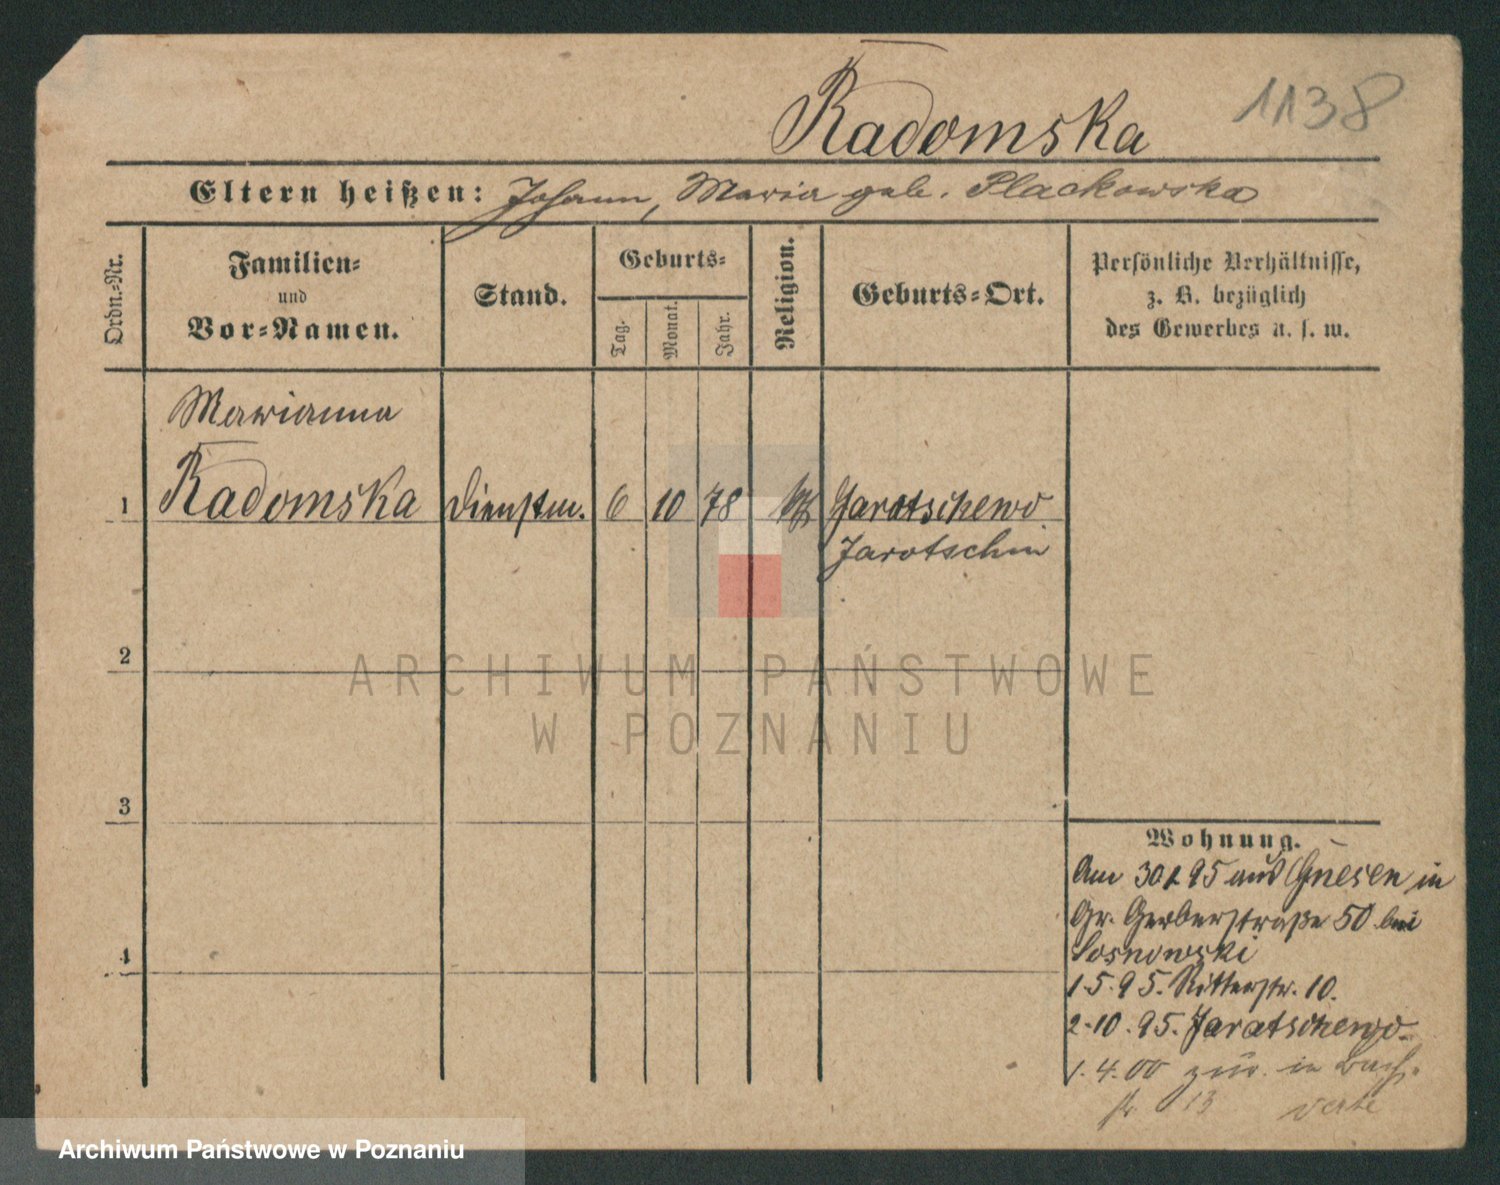 Radomska 1138
Eltern heißen: Johann, Maria geb. Plackowska
Ordn.-Nr.
Familien-
und
Vor-Namen.
Stand.
Geburts-
Tag.
Monat.
Jahr.
Religion.
Geburts-Ort.
Persönliche Verhältnisse,
z. B. bezüglich
des Gewerbes u. s. w.
Marianna
1 Radomska Dienstm. 6 10 78 Jaratschewo
Jarotschin
2
3
4
Wohnung.
Am 30 95 aus Gnesen in
Gr. Gerberstraße 50 bei
Sosnowski
1.5.95. Ritterstr. 10.
2-10.95. Jaratschewo
1.4.00 zur. in
13 verte
ARCHIWUM PAŃSTWOWE
W POZNANIU
Archiwum Państwowe w Poznaniu